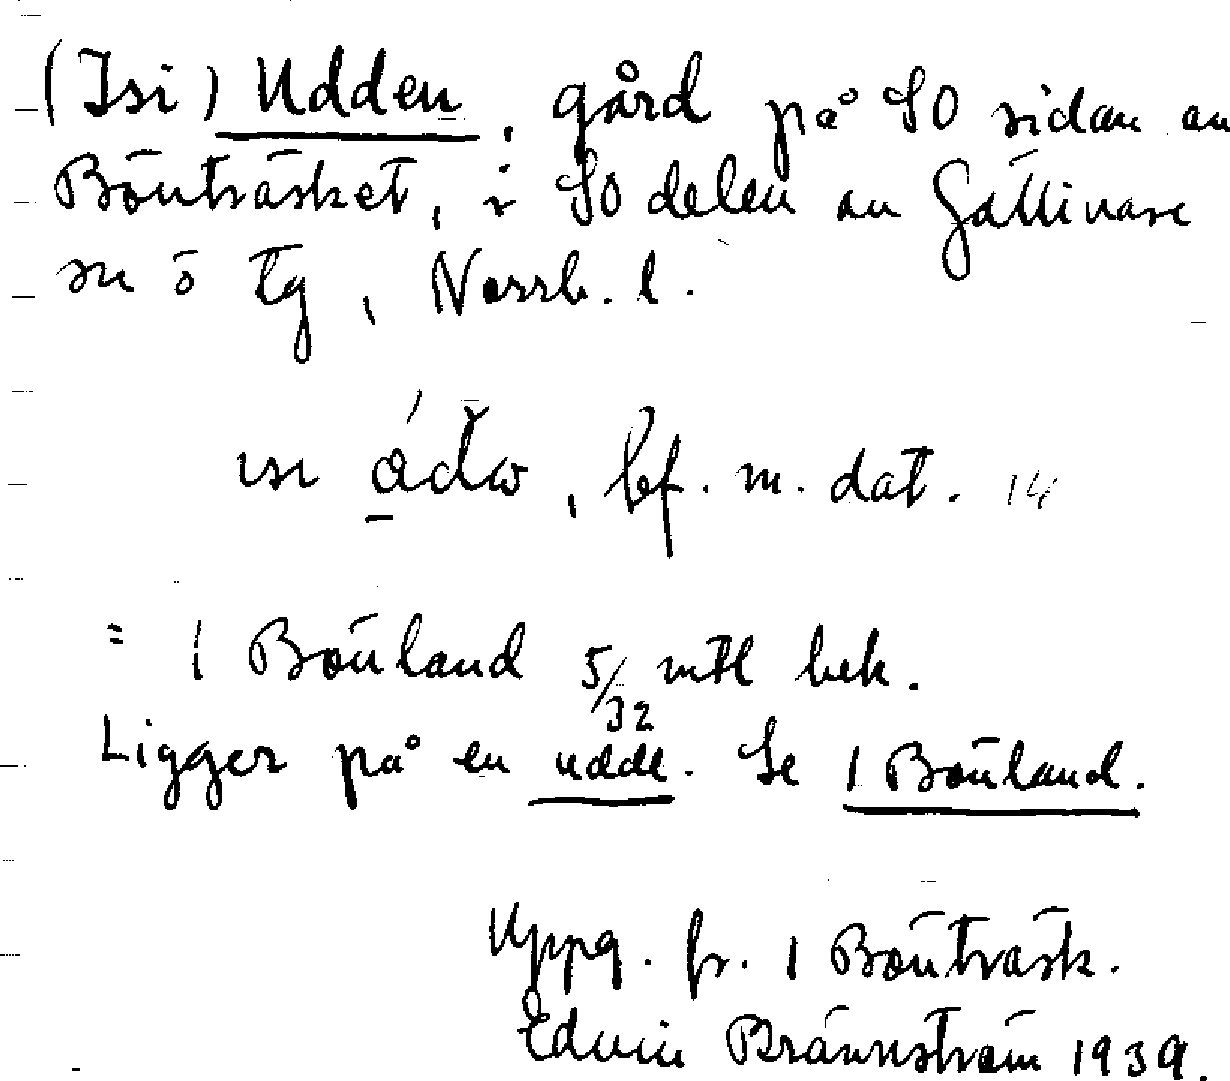 (Isi) Udden, gård på SO sidan av
Bönträsket, i SO delen av Gällivare
sn o tg, Norrb. l.
bf. m. dat. 14
= 1 Bönland 5/32 mtl bek.
Ligger på en udde. Se 1 Bönland.
Uppg. fr. 1 Bönträsk.
Edvin Brännström 1939.